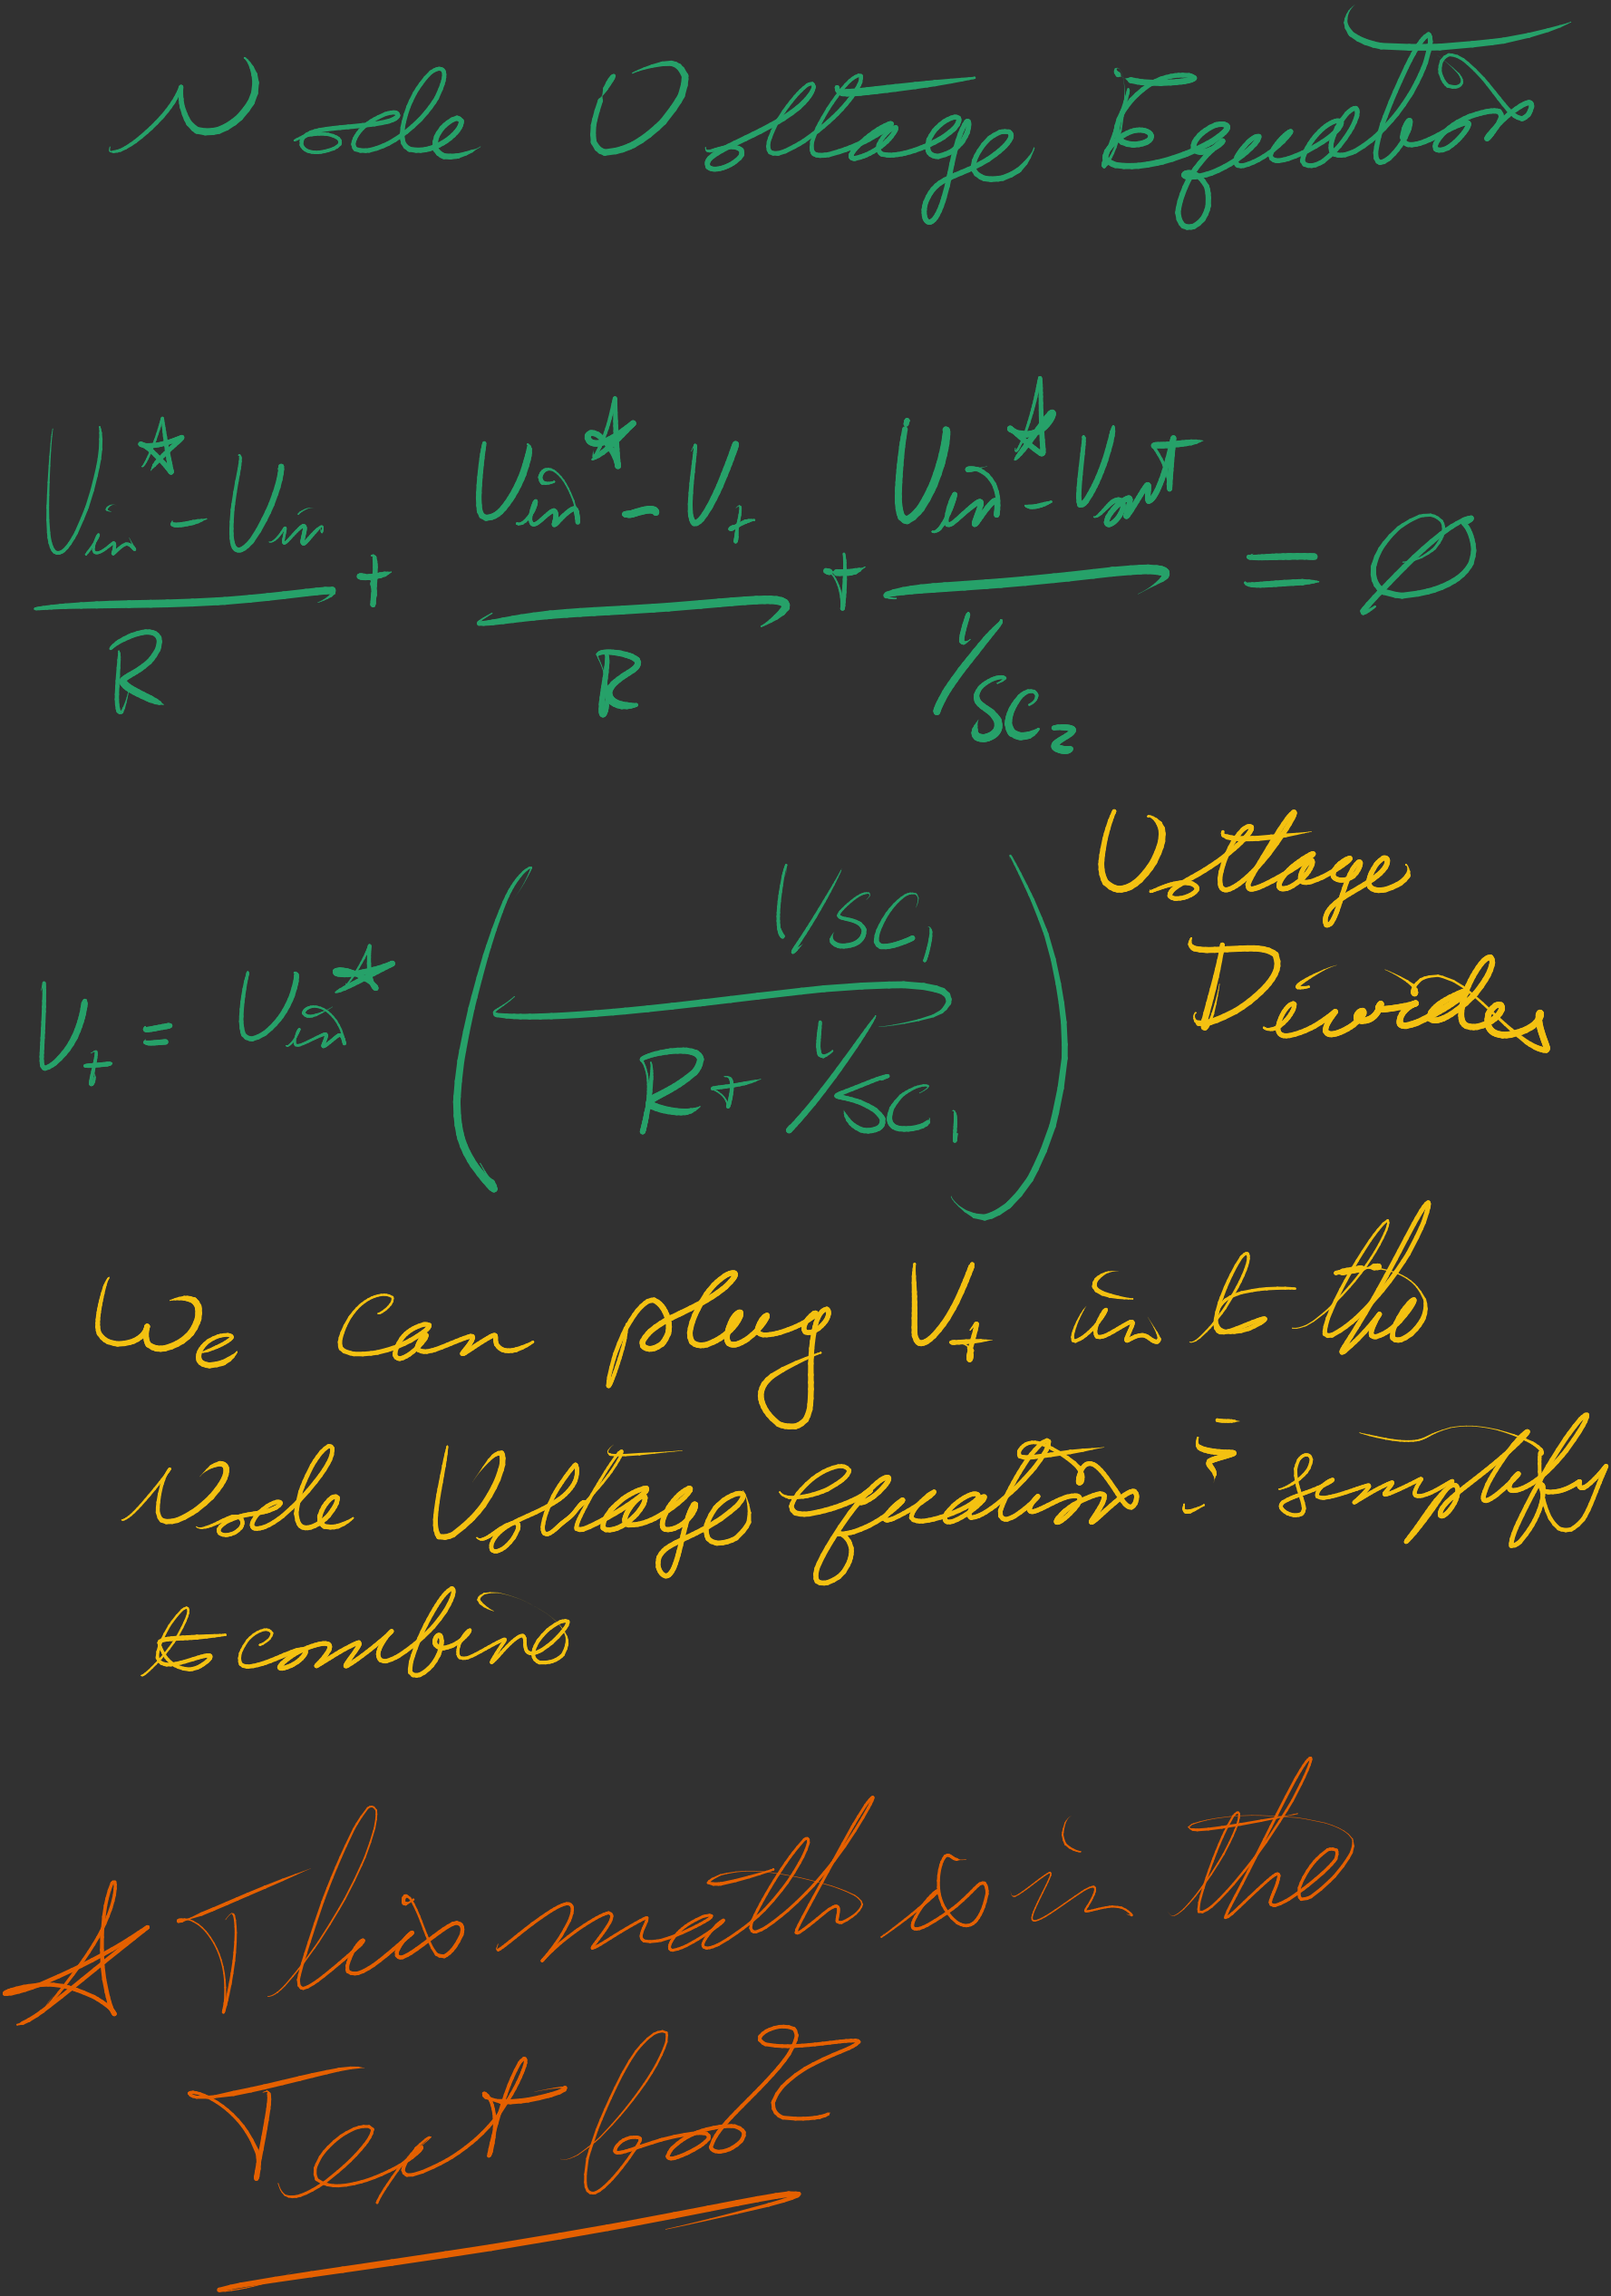 Node Voltage Equation
(Vin* - Vin)/R + (Vin* - V+)/R + (Vin* - Vout)/(1/SC2) = Ø
V+ = Vin* ( (1/SC1) / (R + 1/SC1) ) Voltage Divider
We can plug V+ into the
Node Voltage Equation & simplify
to combine
☆ This math is in the
Text book